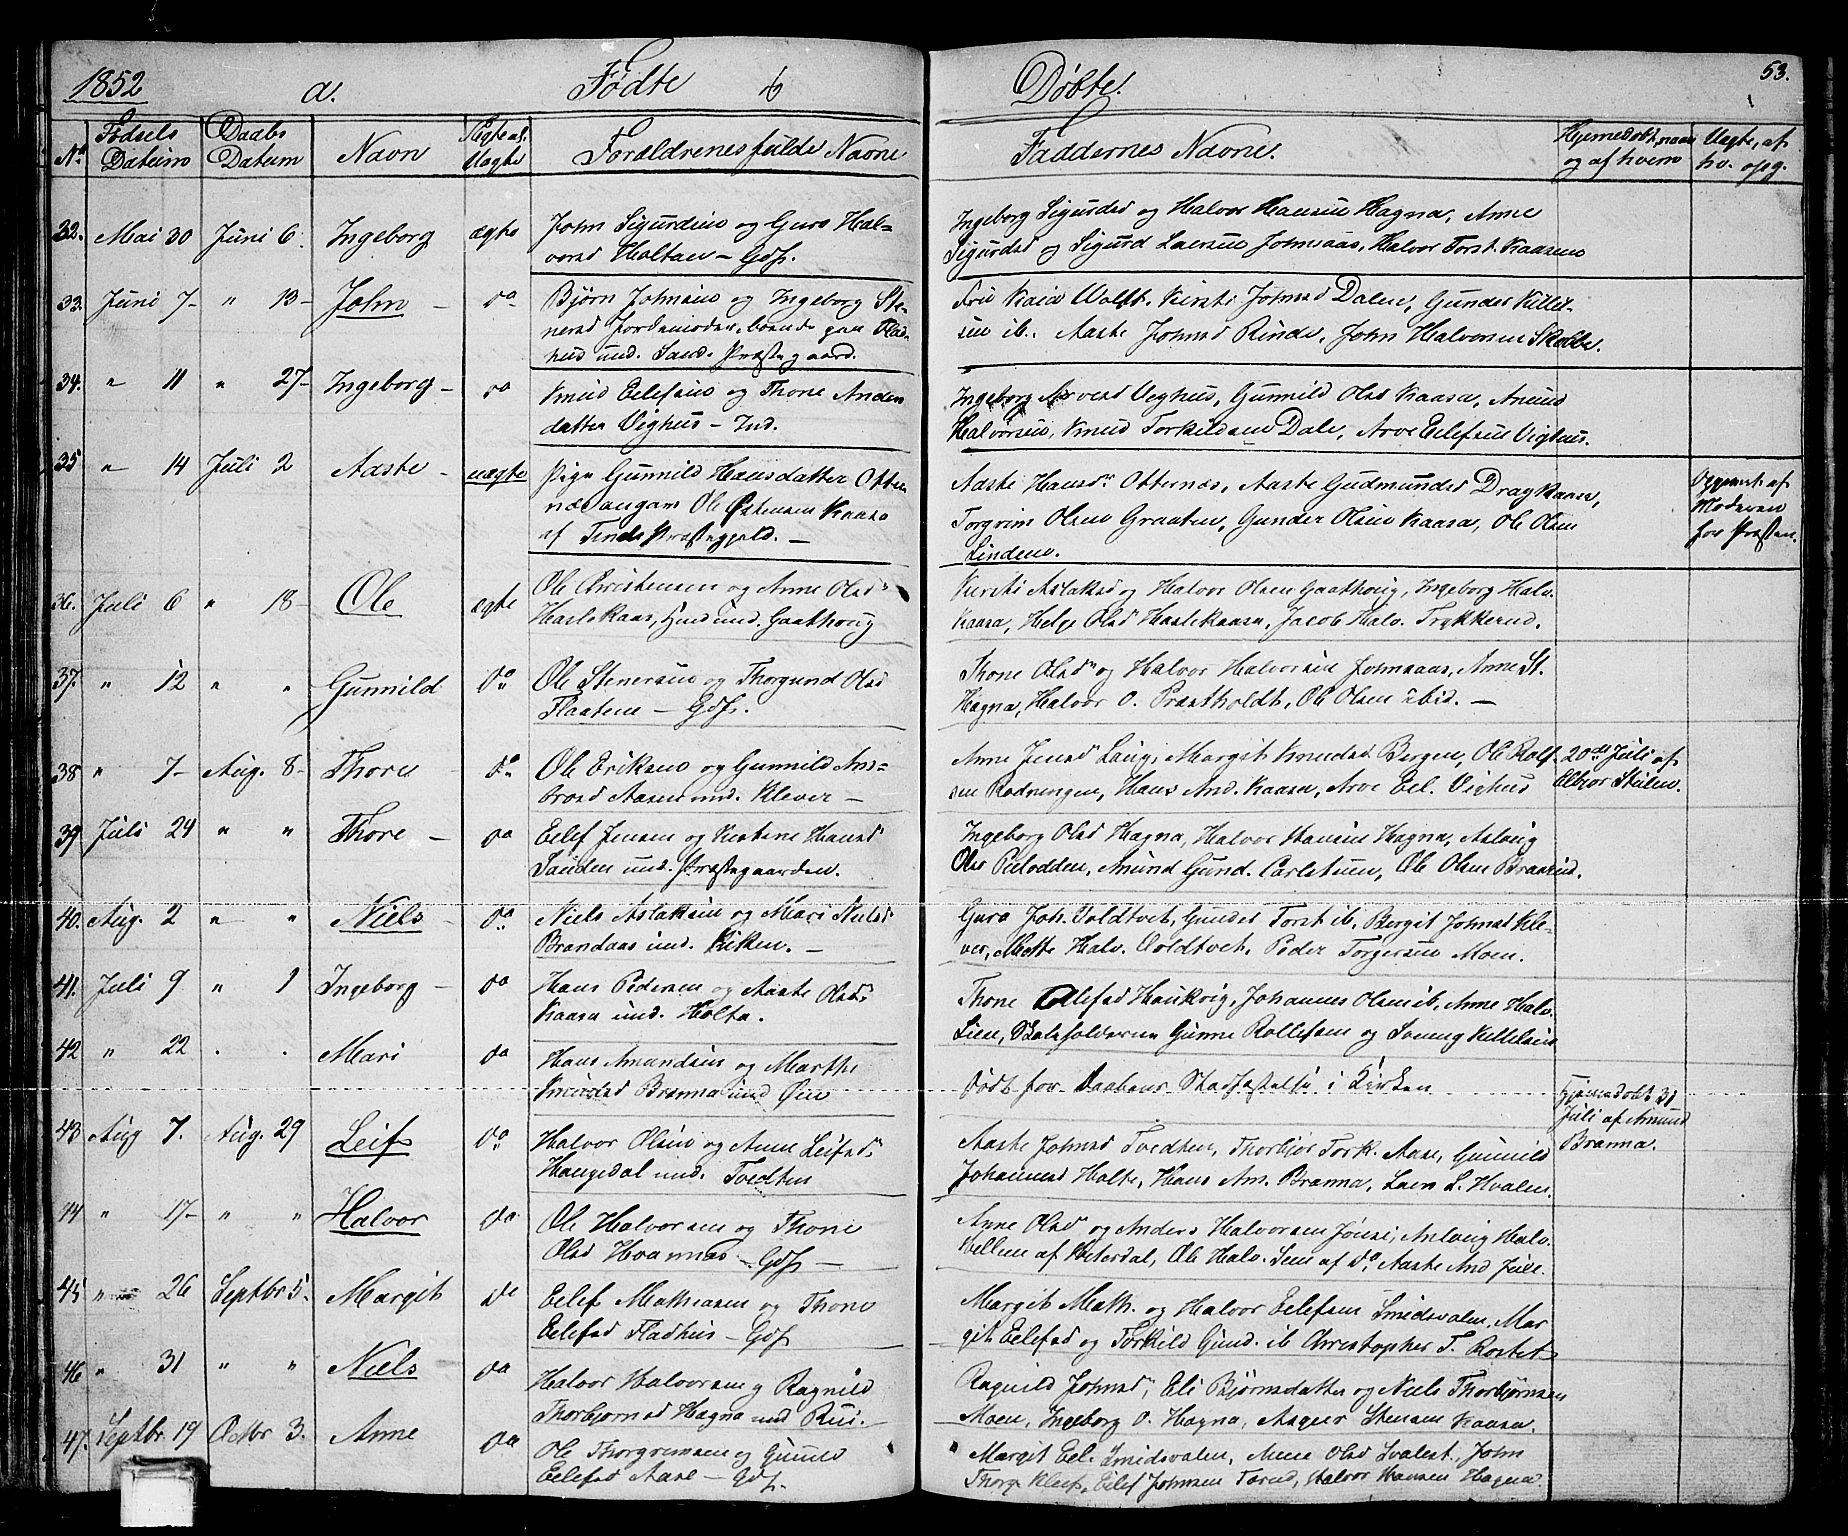 1852 a. Fødte & Døbte. 53.
No Fødsels Datum Daabs Datum Navn Ægte el. Uægte Forældrenes fulde Navne Faddernes Navne. Hjemmedøbt, naar og af hvem Uægte, af hv. opg.
32. Mai 30 Juni 6. Ingeborg ægte John Sigurdsen og Guro Hal-
vorsd Holtan – Gdf.
Ingeborg Sigurdsd og Halvor Hansen Hagna, Anne
Sigurdsd og Sigurd Larsen Johnsaas, Halvor Torst. Kaasene
33. Juni 7– " 13– John – do Bjørn Johnsen og Ingeborg Ste-
nersd Jordemoder, boende paa Flad-
hus und. Sand. Præstegaard.
Fru Kaia Wolff. Kirsti Johnsd Dalen, Gunder Kittil-
sen ib. Aaste Johnsd Rinde, John Halvorsen Skolbe.
34. " 11 " 27– Ingeborg – do Knud Eilefsen og Thone Anden
datter Vighus – Ind.
Ingeborg Arvesd Veghus, Gunnild Olsd Kaasa, Anund
Halvorsen, Knud Torkildsen Dale, Arve Eilefsen Vighus.
35 " 14 Juli 2 Aaste – uægte Pige Gunnild Hansdatter Otter
næs, ungkarl Ole Østensen Kaasa
af Tinds Præstegjeld. –
Aaste Hansdr Otternæs, Aaste Gudmundsd Dragkaasa,
Torgrim Olsen Graaten, Gunder Olsen Kaasa, Ole Olsen
Lindem.
Opgivet af
Moderen
for Præsten.
36. Juli 6 " 18– Ole ægte Ole Christensen og Anne Olsdr
Haslekaas, Husmd. und. Gaathoug
Kirsti Aslaksd og Halvor Olsen Gaathoug, Ingeborg Halv.
Kaasa, Helge Olsdr Haslekaasa, Jacob Halv. Trykkerud.
37. " 12 " " Gunnild do Ole Stenersen og Thorgund Olsd
Flaatene – Gdf.
Thone Olsdr og Halvor Halvorsen Johnsaas, Anne St.
Hagna, Halvor O. Præstholdt, Ole Olsen ibid. –
38 " 7– Aug. 8– Thore – do Ole Eriksen og Gunnild Am-
brosd Aasen und. Klever –
Anne Jensdr Laug, Margit Knudsd Bergen, Ole Rolf-
sen Rodningen, Hans And. Kaasa, Arve Eil. Vighus
20de Juli af
Elbjør Stulen.
39. Juli 24 " " Thore – do Eilef Jensen og Kirstine Hansdr
Sanden und. Præstegaarden.
Ingeborg Olsd Hagna, Halvor Hansen Hagna, Aslaug
Ols Pelodden, Anund Gund. Carlstuen, Ole Olsen Braarud.
40. Aug. 2 " " Niels – do Niels Aslaksen og Mari Nielsdr
Brandaas und. Kiken. –
Guro Joh. Voldtvet, Gunder Torst ib. Bergit Johnsd Kle-
ver, Mette Halv. Voldtvet, Peder Torgersen Moen.
41. Juli 9 " 1 Ingeborg – do Hans Pedersen og Aaste Olsdr
Kaasa und. Holta.
Thone Olefsd Haukvig, Johannes Olsen ib, Anne Halv.
Lien, Skoleholderne Gunne Rollefsen og Sveinung Kittilsen
42 " 22 . . Mari do Hans Amundsen og Marthe
Knudsd Brænna und Øen
Død før Daabens Stadfæstelse i Kirken.
Hjemmedøbt 31
Juli af Amund
Brænna.
43 Aug 7. Aug. 29 Leif do Halvor Olsen og Anne Leifsdr
Haugedal und. Tvedten
Aaste Johnsd Tvedten, Thorbjør Tork. Aase, Gunnild
Johannesd Holte, Hans Am. Brænna, Lars L. Hvalen.
44 " 17– " " Halvor do Ole Halvorsen og Thone
Olsd Hvamnas – Gdf –
Anne Olsd og Anders Halvorsen Jønsi, Anlaug Halv.
Kellem af Hiterdal, Ole Halv. Sem af do Aaste And Juve.
45 " 26 Septbr 5. Margit do Eilef Mathiasen og Thone
Eilefsd Fladhus – Gdf
Margit Math. og Halvor Eilefsen Smidsvalen, Mar
git Eilefsd og Torkild Gund. ib Christopher T. Rostet
46 " 31 " " Niels do Halvor Halvorsen og Ragnild
Thorbjørnsd Hagna und Rui.
Ragnild Johnsdr, Eli Bjørnsdatter og Niels Thorbjørnsen
Moen, Ingeborg O. Hagna, Asgier Stensen Kaasa
47. Septbr 19 Octbr 3. Anne do Ole Thorgrimsen og Gunnild
Eilefsd Aase – Gdf.
Margit Eil. Smidsvalen, Anne Olsd Svalest., John
Thorg. Kleif, Eilef Johnsen Tarud, Halvor Hansen Hagna.